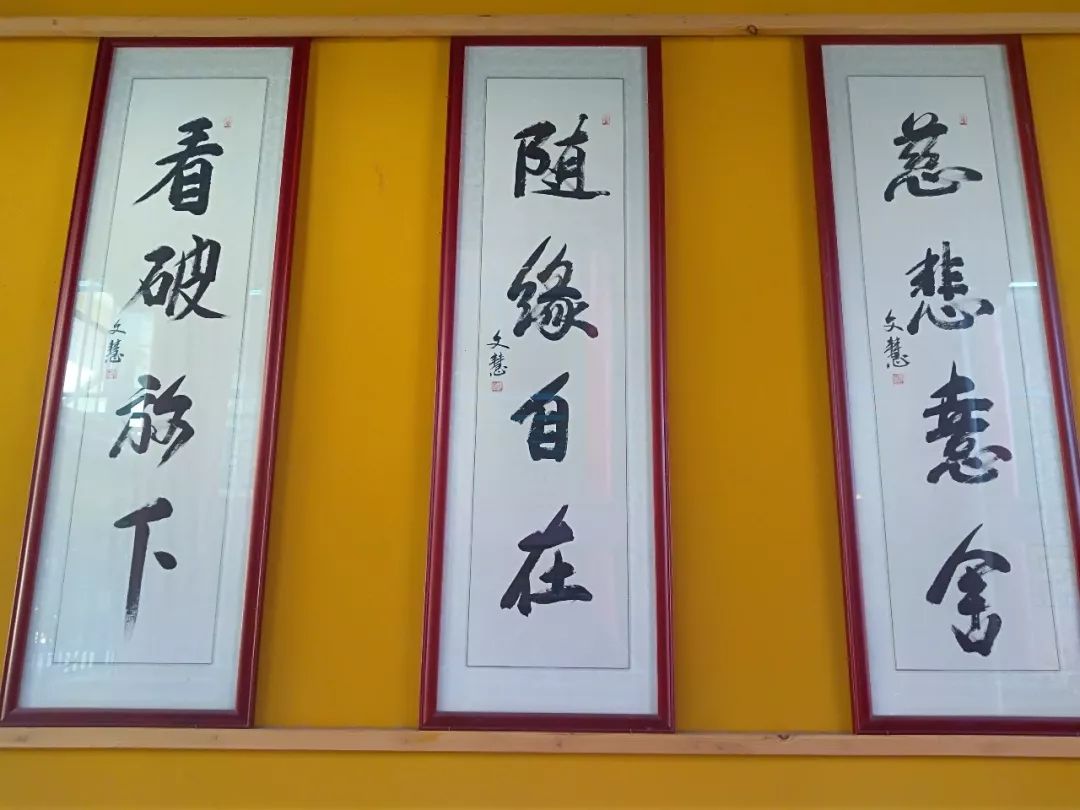 看破放下
文慧
随缘自在
文慧
慈悲憙舍
文慧